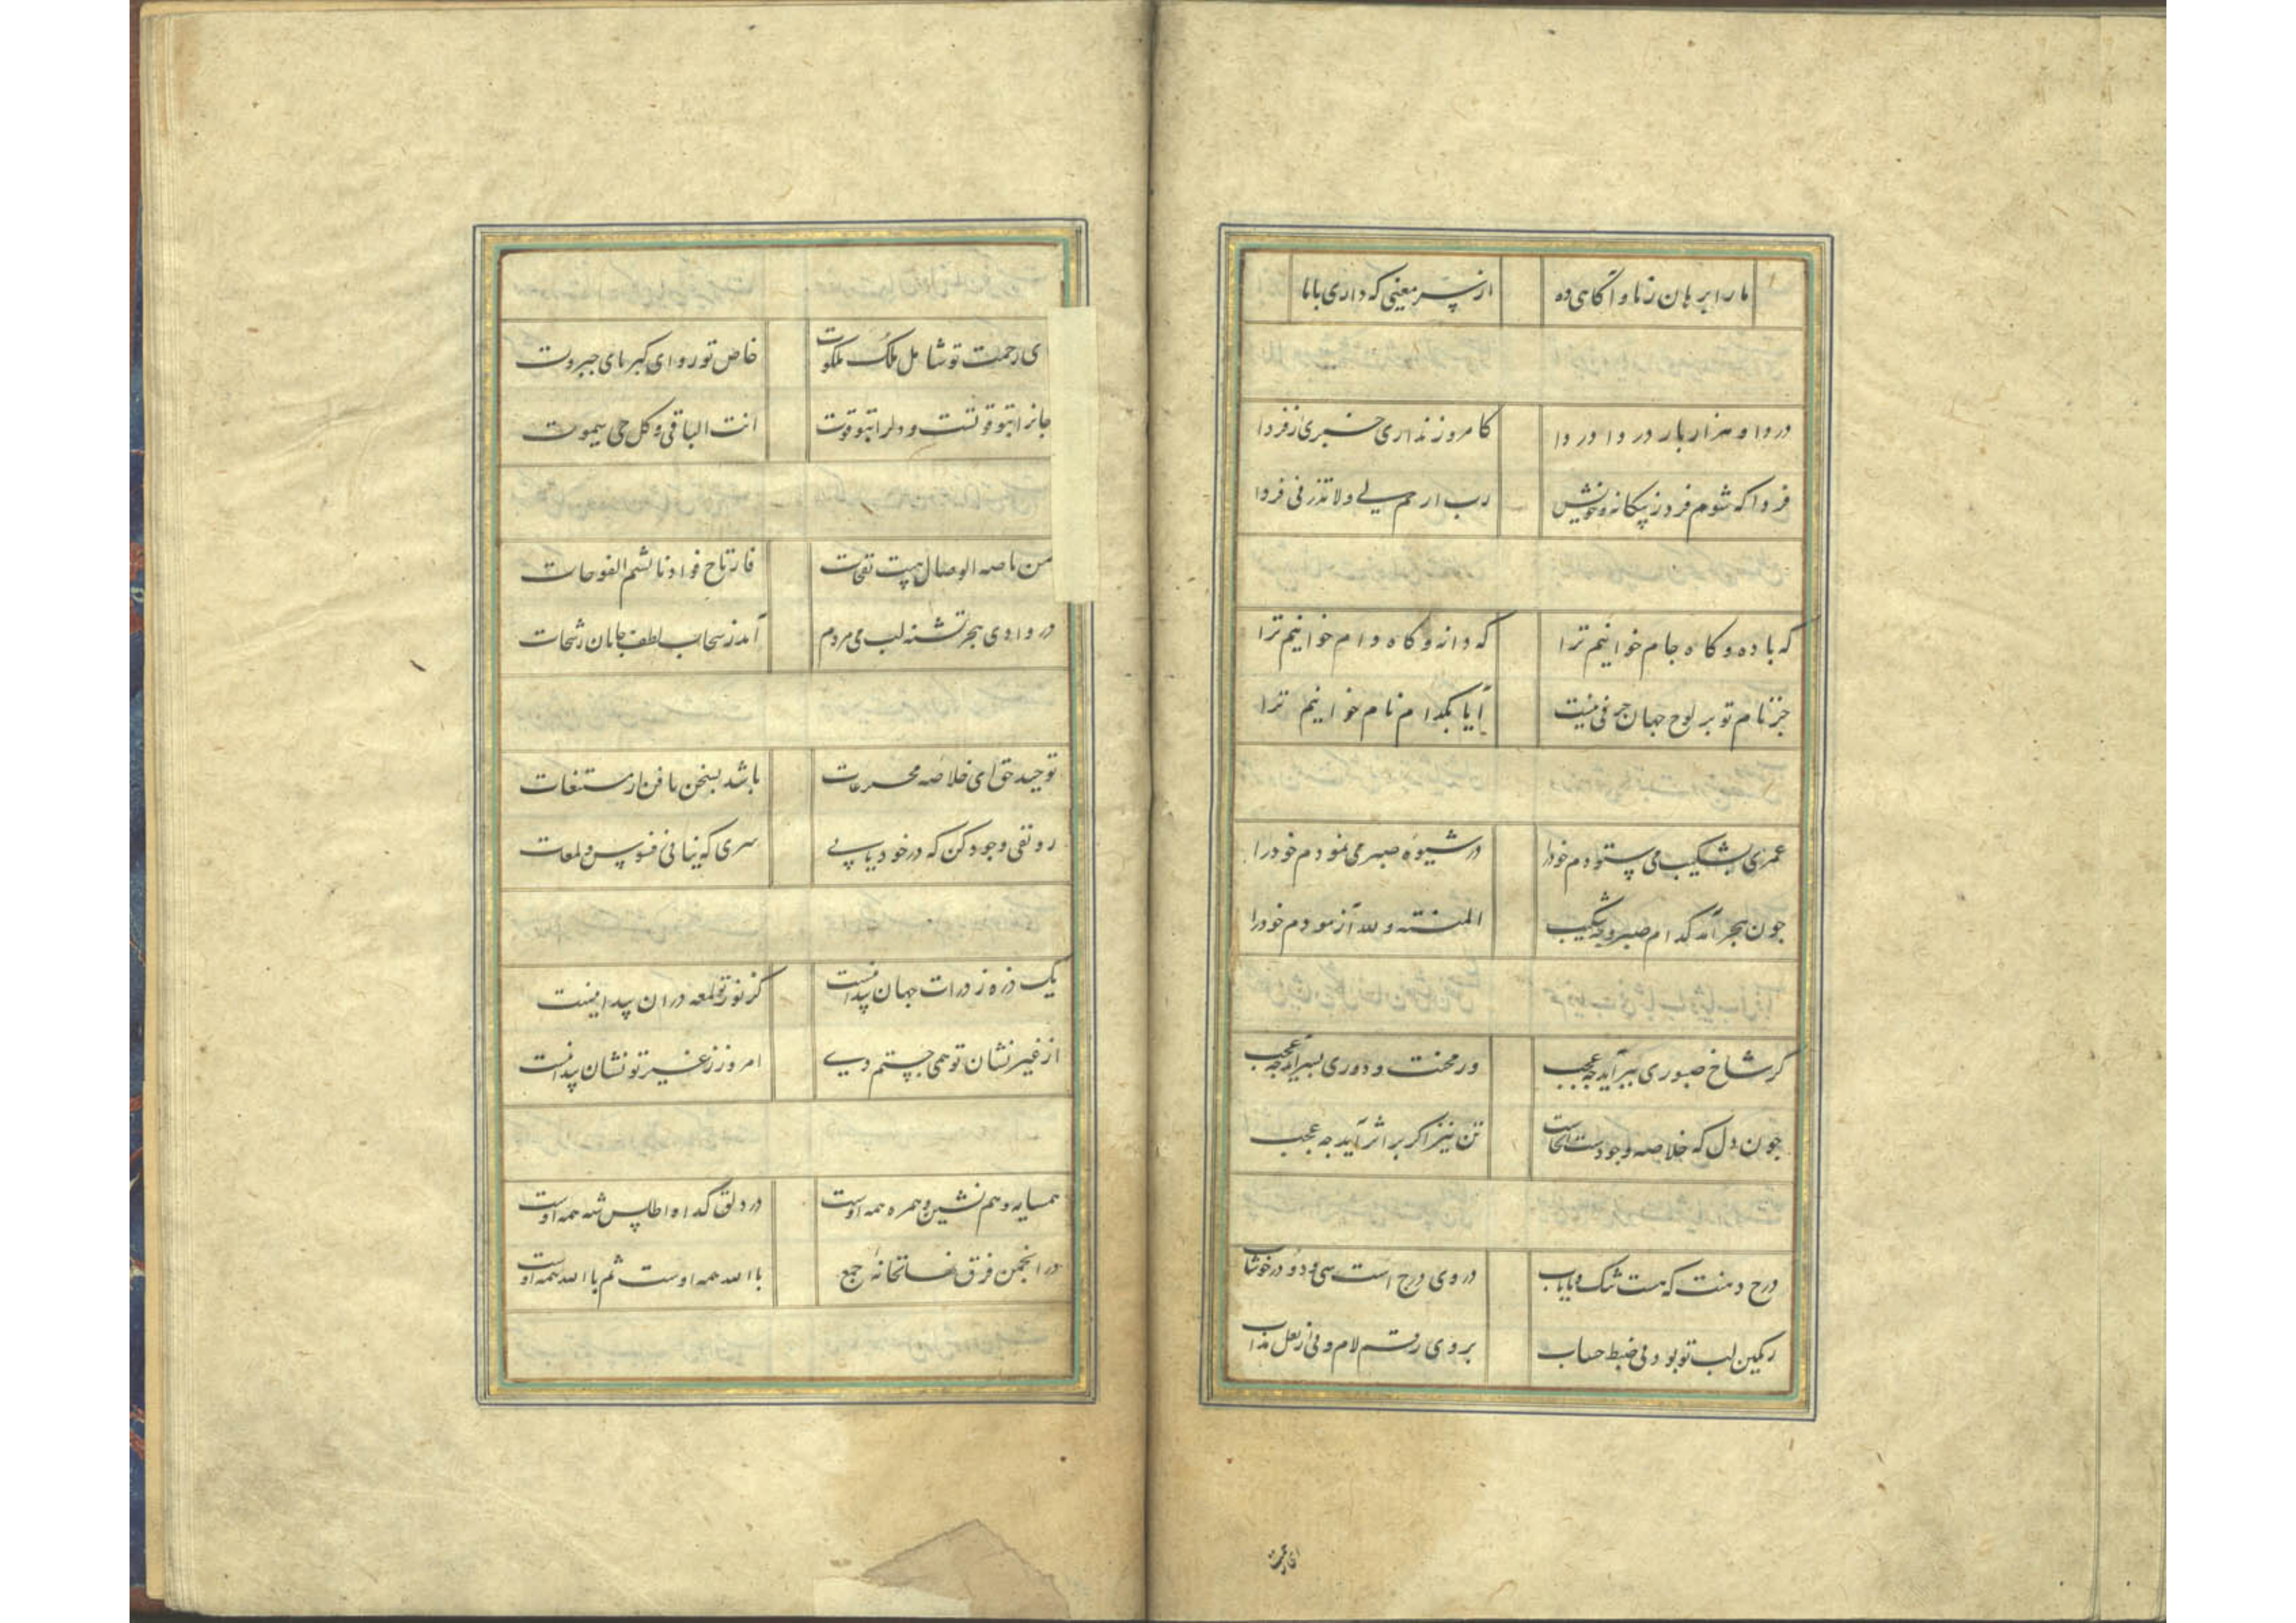 ما را برهان ز ما و آگاهی ده از سر معینی که داری با ما
دردا و هزار بار دردا دردا کامروز نداری خبری از فردا
فردا که شوم فرد ز بیکانه و خویش رب ارحم لی ولا تذرنی فردا
که باده و کاه جام خوانیم ترا که دانه و کاه دام خوانیم ترا
جز نام تو بر لوح جهان حرفی نیست آیا بکدام نام خوانیم ترا
عمری بشکیب می ستودم خود را در شیوه صبر می نمودم خود را
جون هجر آمد کدام صبر و جه شکیب المنته لله آزمودم خود را
کر شاخ صبوری ببر آید جه عجب ور محنت و دوری بسر آید جه عجب
جون دل که خلاصه وجودست آنجاست تن نیز اکر بر اثر آید جه عجب
درج دهنت که هست تنک و نایاب در وی درج است سی و دو در خوشاب
رنکین لب تو بود پی ضبط حساب بر وی رقم لام و پی از لعل مذاب
ای رحمت
ی رحمت تو شامل ملک ملکوت خاص تو ردای کبریای جبروت
جانرا بتو قوتست و دلرا بتو قوت انت الباقی و کل حی سیموت
من ناصه الوصال هبت نفحات فارتاح فوادنا بشم الفوحات
در وادی هجر تشنه لب می مردم آمد ز سحاب لطف جانان رشحات
توحید حق ای خلاصه مخترعات باشد بسخن یافتن از ممتنعات
رو نفی وجود کن که در خود یابی سری که نیابی ز فصوص و لمعات
یک ذره ز ذرات جهان پیدا نیست کز نور تو لمعه در ان پیدا نیست
از غیر نشان تو همی جستم دی امروز ز غیر تو نشان پیدا نیست
همسایه و هم نشین و همره همه اوست در دلق کدا و اطلس شه همه اوست
در انجمن فرق و نهانخانه جمع باالله همه اوست ثم باالله همه اوست